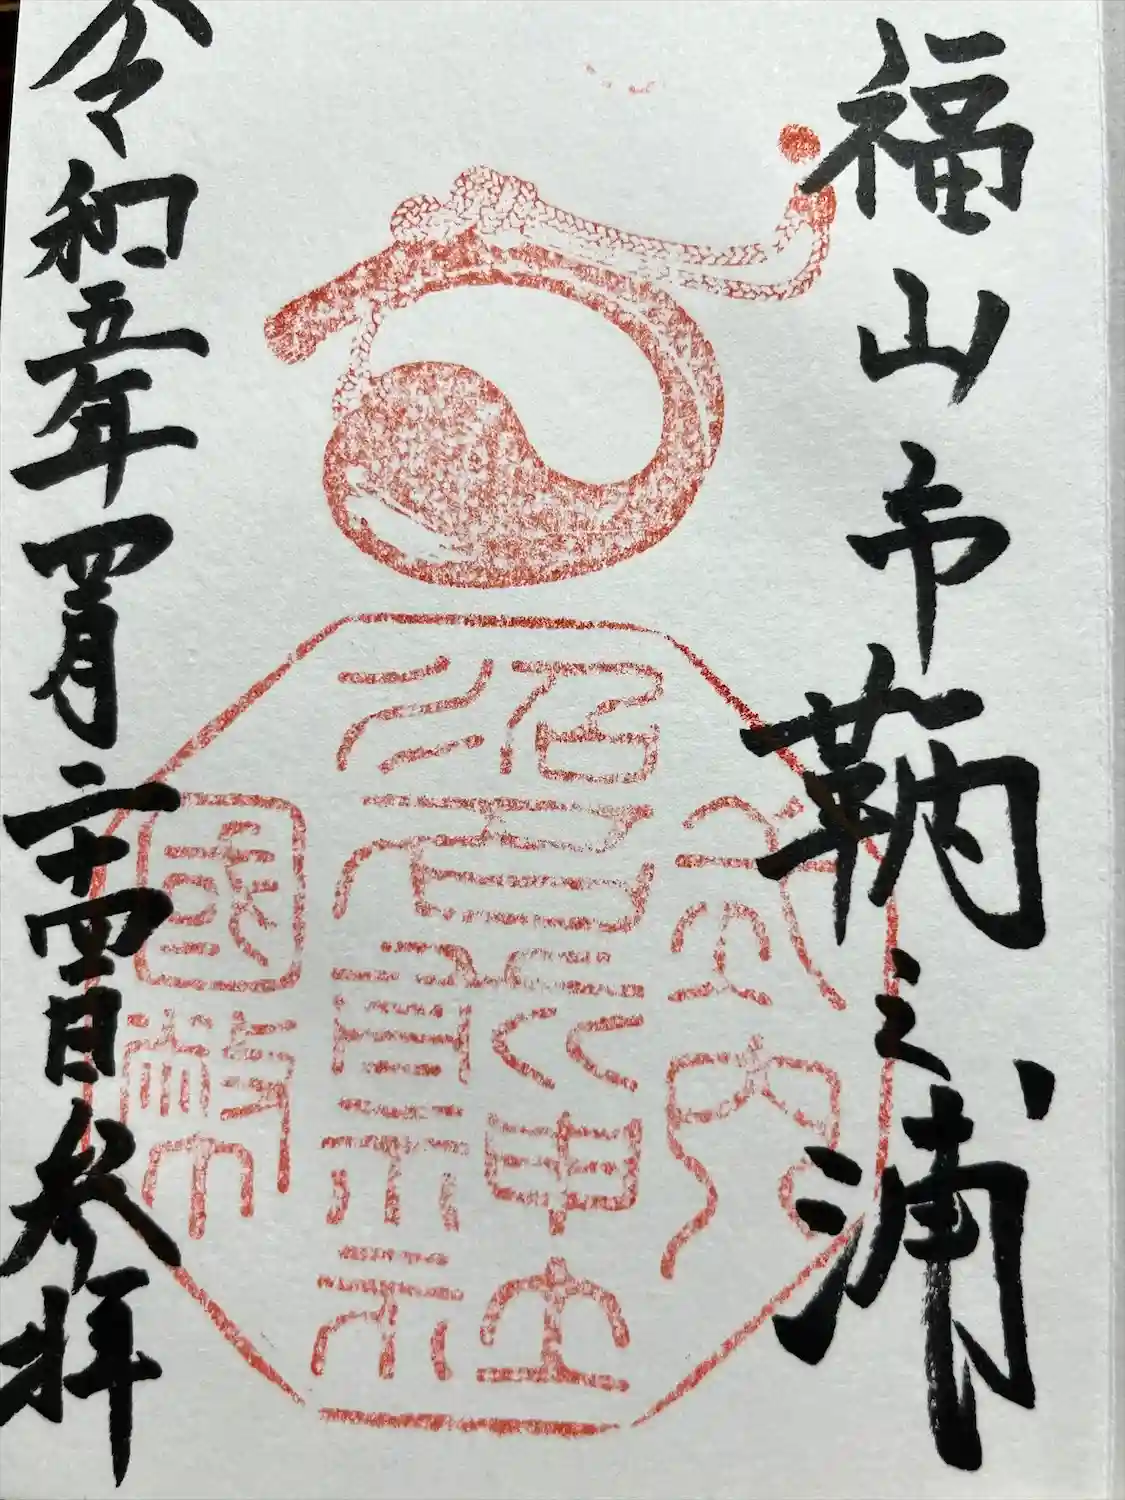 福山市鞆之浦
式内
沼名前神社
國幣
令和五年四月二十四日参拝